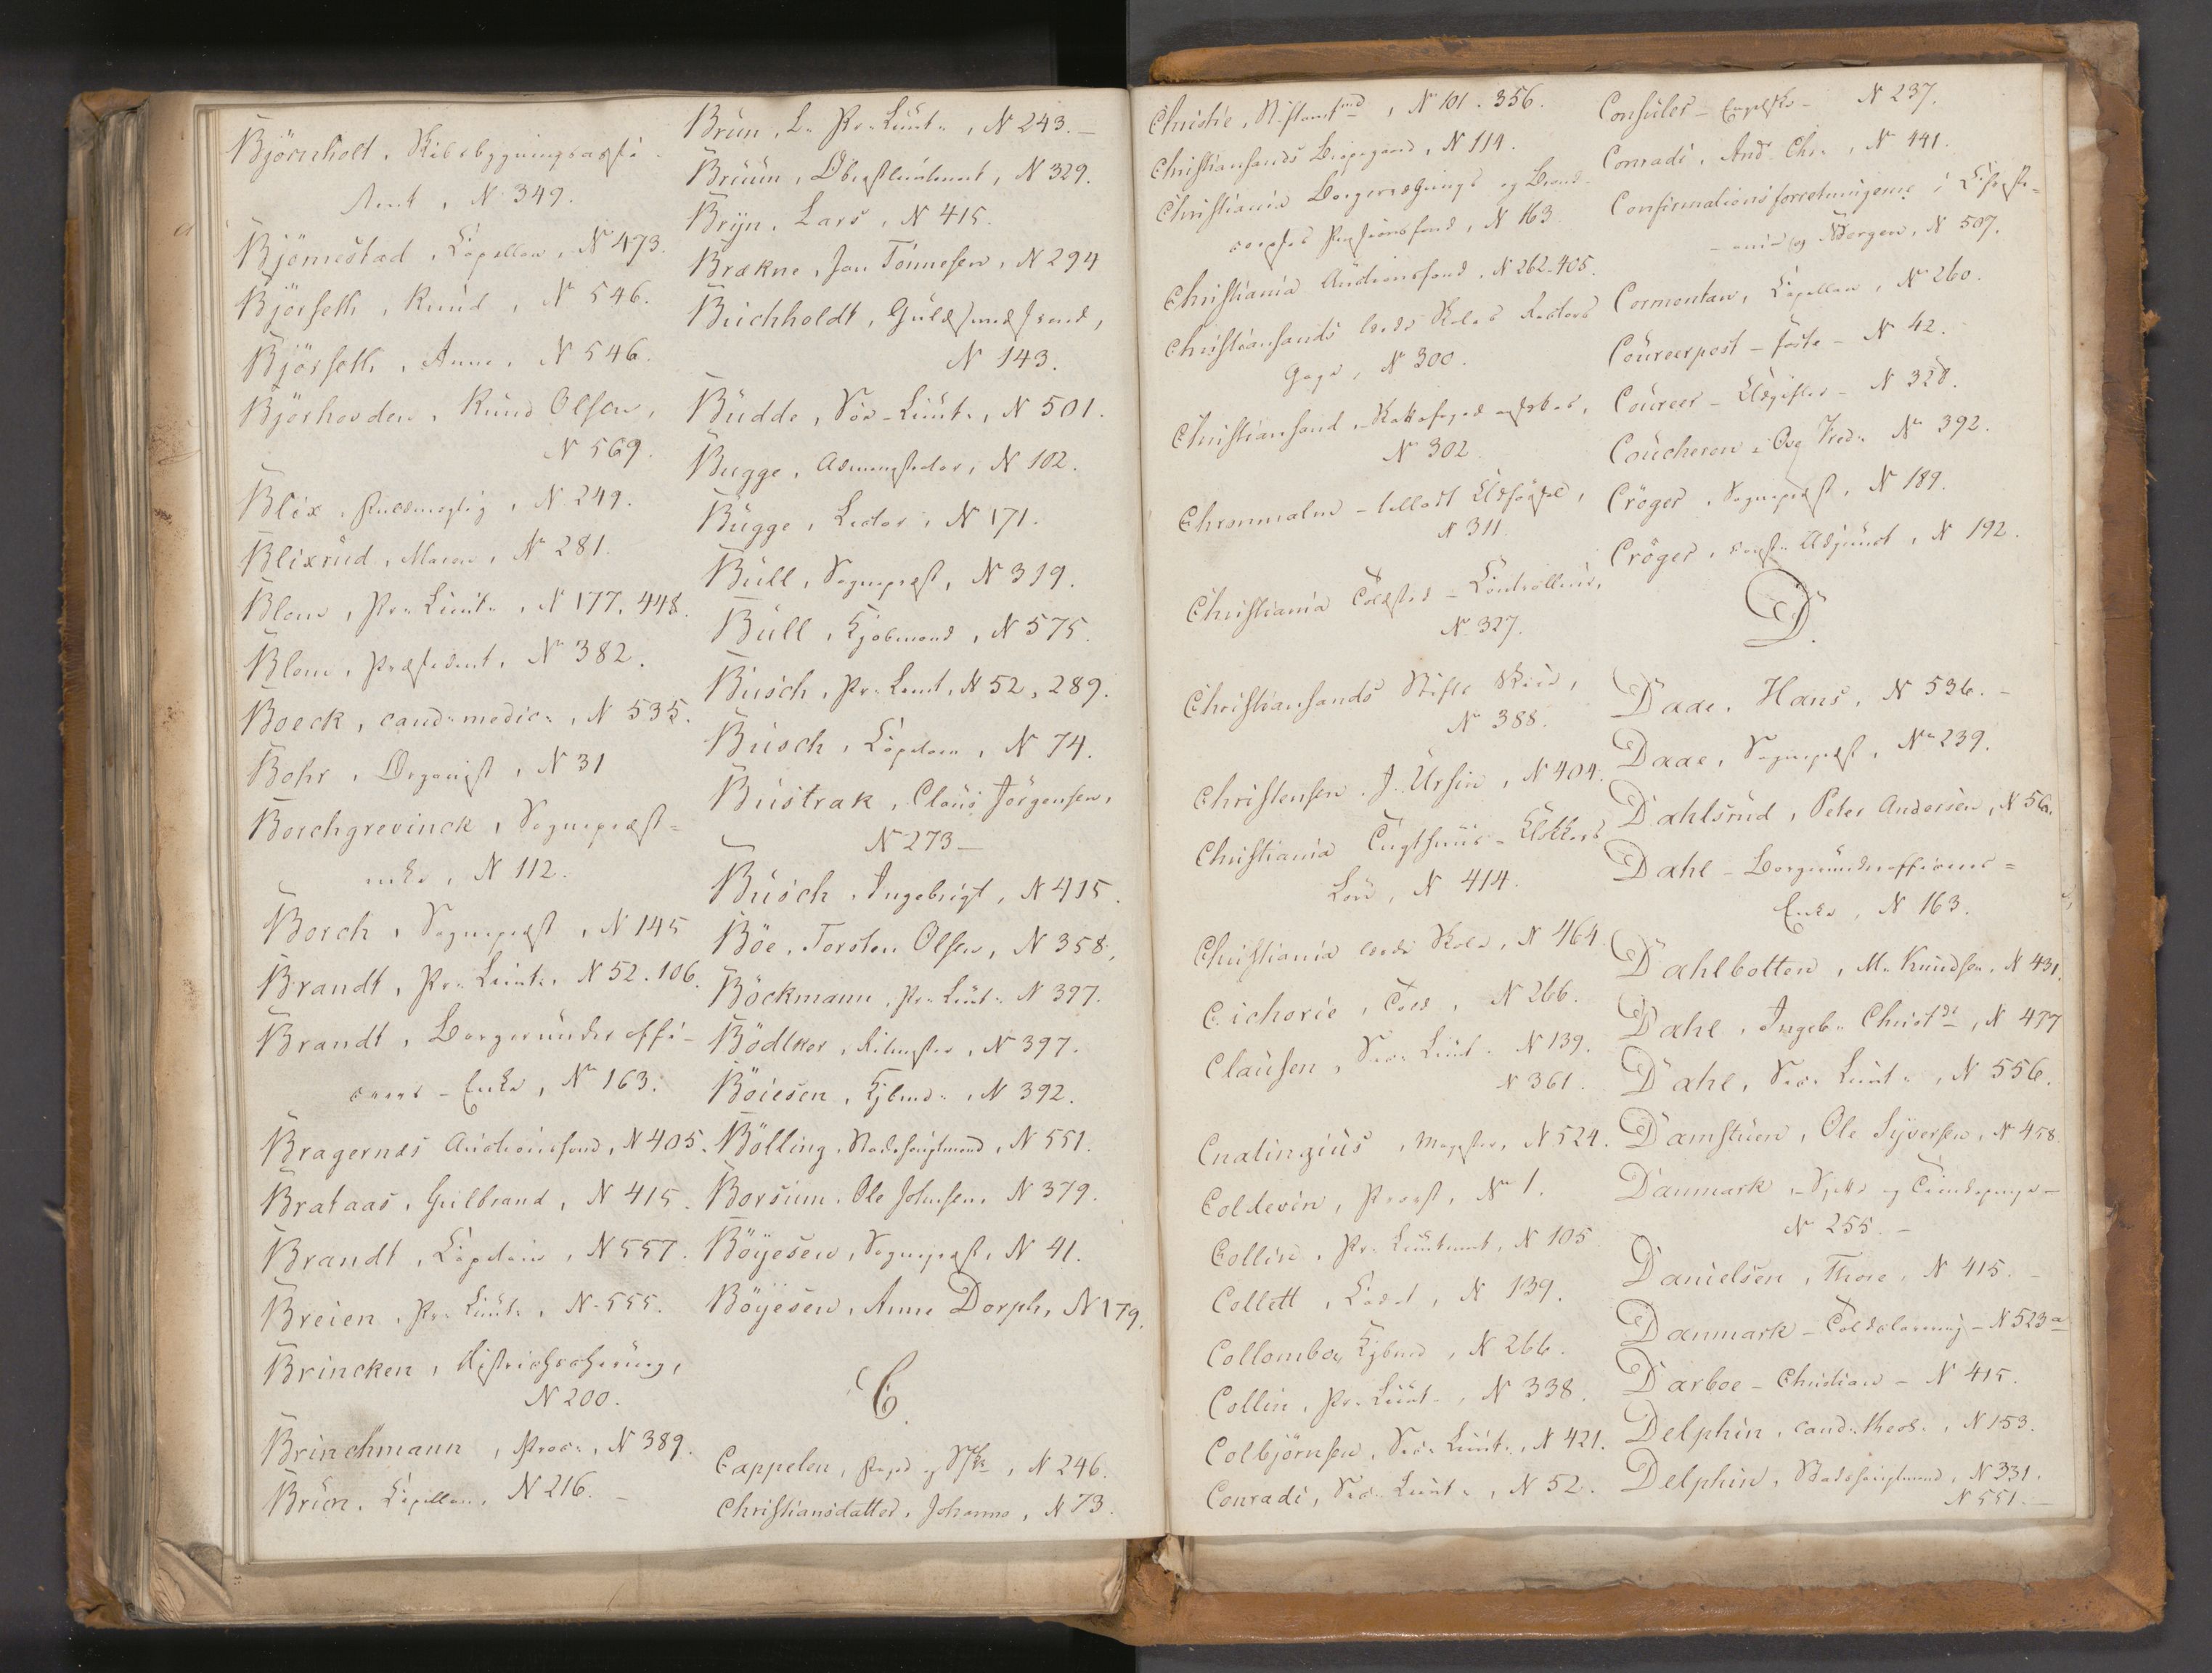 Björnholt, Skibsbygningsassi-
stent, N 349.
Björnestad, Capellan, N 473.
Björseth, Knud, N 546.
Björseth, Anne, N 546.
Björhovden, Knud Olsen,
N 569.
Blix, Fuldmægtig, N 249.
Blixrud, Maren, N 281.
Blom, Pr. Lieut., N 177. 448.
Blom, Præsident, N 382.
Boeck, cand. medic., N 535.
Bohr, Organist, N 31
Borchgrevinck, Sognepræst=
enke, N 112.
Borch, Sognepræst, N 145
Brandt, Pr. Lieut., N 52. 106.
Brandt, Borgerunderoffi-
ceers-Enke, N 163.
Bragernæs Auctionsfond, N 405.
Brataas, Gulbrand, N 415.
Brandt, Capitain, N 557.
Breien, Pr. Lieut., N 555.
Brincken, Districtschirurg,
N 200.
Brinchmann, Proc., N 389.
Brun, Capellan, N 216. –
Brun, L. Pr. Lieut., N 243. –
Bruun, Oberstlieutenant, N 329.
Bryn, Lars, N 415.
Brækne, Jon Tönnesen, N 294
Buchholdt, Guldsmedsvend,
N 143.
Budde, Sec. Lieut., N 501.
Bugge, N 102.
Bugge, Lector, N 171.
Bull, Sognepræst, N 319.
Bull, Kjöbmand, N 575.
Busch, Pr. Lieut, N 52, 289.
Busch, Capitain, N 74.
Bustrak, Claus Jörgensen,
N 273 –
Busch, Ingebrigt, N 415.
Böe, Torsten Olsen, N 358.
Böckmann, Pr. Lieut. N 397.
Bödtker, Ritmester, N 397.
Böiesen, Kjbmd., N 392.
Bölling, Stadshauptmand, N 551.
Borsum, Ole Johnsen, N 379.
Böyesen, Sognepræst, N 41.
Böyesen, Anne Dorph, N 179.
C.
Cappelen, Foged og Skr, N 246.
Christiansdatter, Johanne, N 73.
Christie, Stiftamtmd, N 101. 356.
Christiansands Bispegaard, N 114.
Christiania Borgervæbnings og Brand-
corpses Pensionsfond, N 163
Christiania Auctionsfond, N 262. 405.
Christiansands lærde Skoles Rectors
Gage, N 300.
Christiansand,
N 302.
Chrommalm – tilladt Udförsel,
N 311.
Christiania Toldsted – Controlleur,
N 327.
Christiansands Stifts
N 388.
Christensen. J. Ursin, N 404.
Christiania Tugthuus-Klokkers
Lön, N 414.
Christiania lærde Skole, N 464.
Cichorie, Told, N 266.
Clausen, Sec. Lieut. N 139.
N 361.
Cnatingius, Magister, N 524.
Coldevin, Provst, N 1.
Collin, Pr. Lieutenant, N 105
Collett, Cadet, N 139.
Collombo, Kjbmd, N 266.
Collin, Pr. Lieut., N 338.
Colbjörnsen, Sec. Lieut., N 421.
Conradi, Sec. Lieut., N 52.
Consuler – Engelske – N 237.
Conradi, And. Chr., N 441.
Confirmationsforretningerne i Christi=
ania og Bergen, N 507.
Cormontan, Capellan, N 260.
Coureerpost – förste – N 42.
Coureer – Udgifter – N 328.
Coucheron, Ove Fred. N 392.
Cröger, Sognepræst, N 189.
Cröger, Adjunct, N 192.
D.
Daae, Hans, N 536. –
Daae, Sognepræst, N 239.
Dahlsrud, Peter Andersen, N 56.
Dahl – Borgerunderofficeers=
Enke, N 163.
Dahlbotten, M. Knudsen, N 431.
Dahl, Ingeb. Christdr, N 477
Dahl, Sec. Lieut., N 556.
Damstuen, Ole Syversen, N 458.
Danmark –
N 255. –
Danielsen, Thore, N 415. –
Danmark – N 523 a
Darboe – Christian – N 415.
Delphin, cand. theol., N 153.
Delphin, Stadshauptmand, N 331.
N 551. –